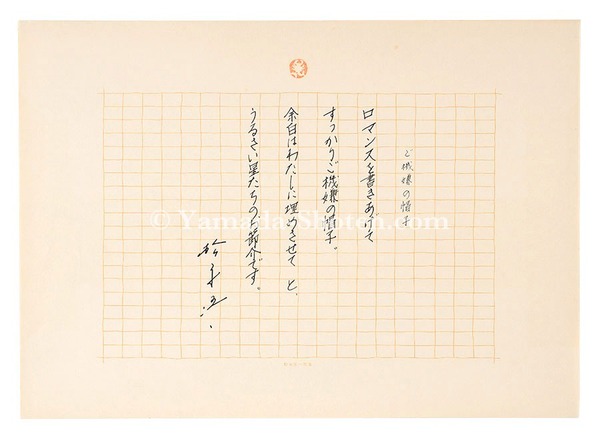 ご機嫌の帽子
ロマンスを書きあげて
すっかりご機嫌の帽子。
余白はわたしに埋めさせて と、
うるさい星たちのお節介です。
© YamadaShoten.com